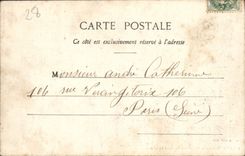 28
CARTE POSTALE
Ce côté est exclusivement réservé à l'adresse
Monsieur André
106 rue Vercingétorix 106
Paris (Seine)